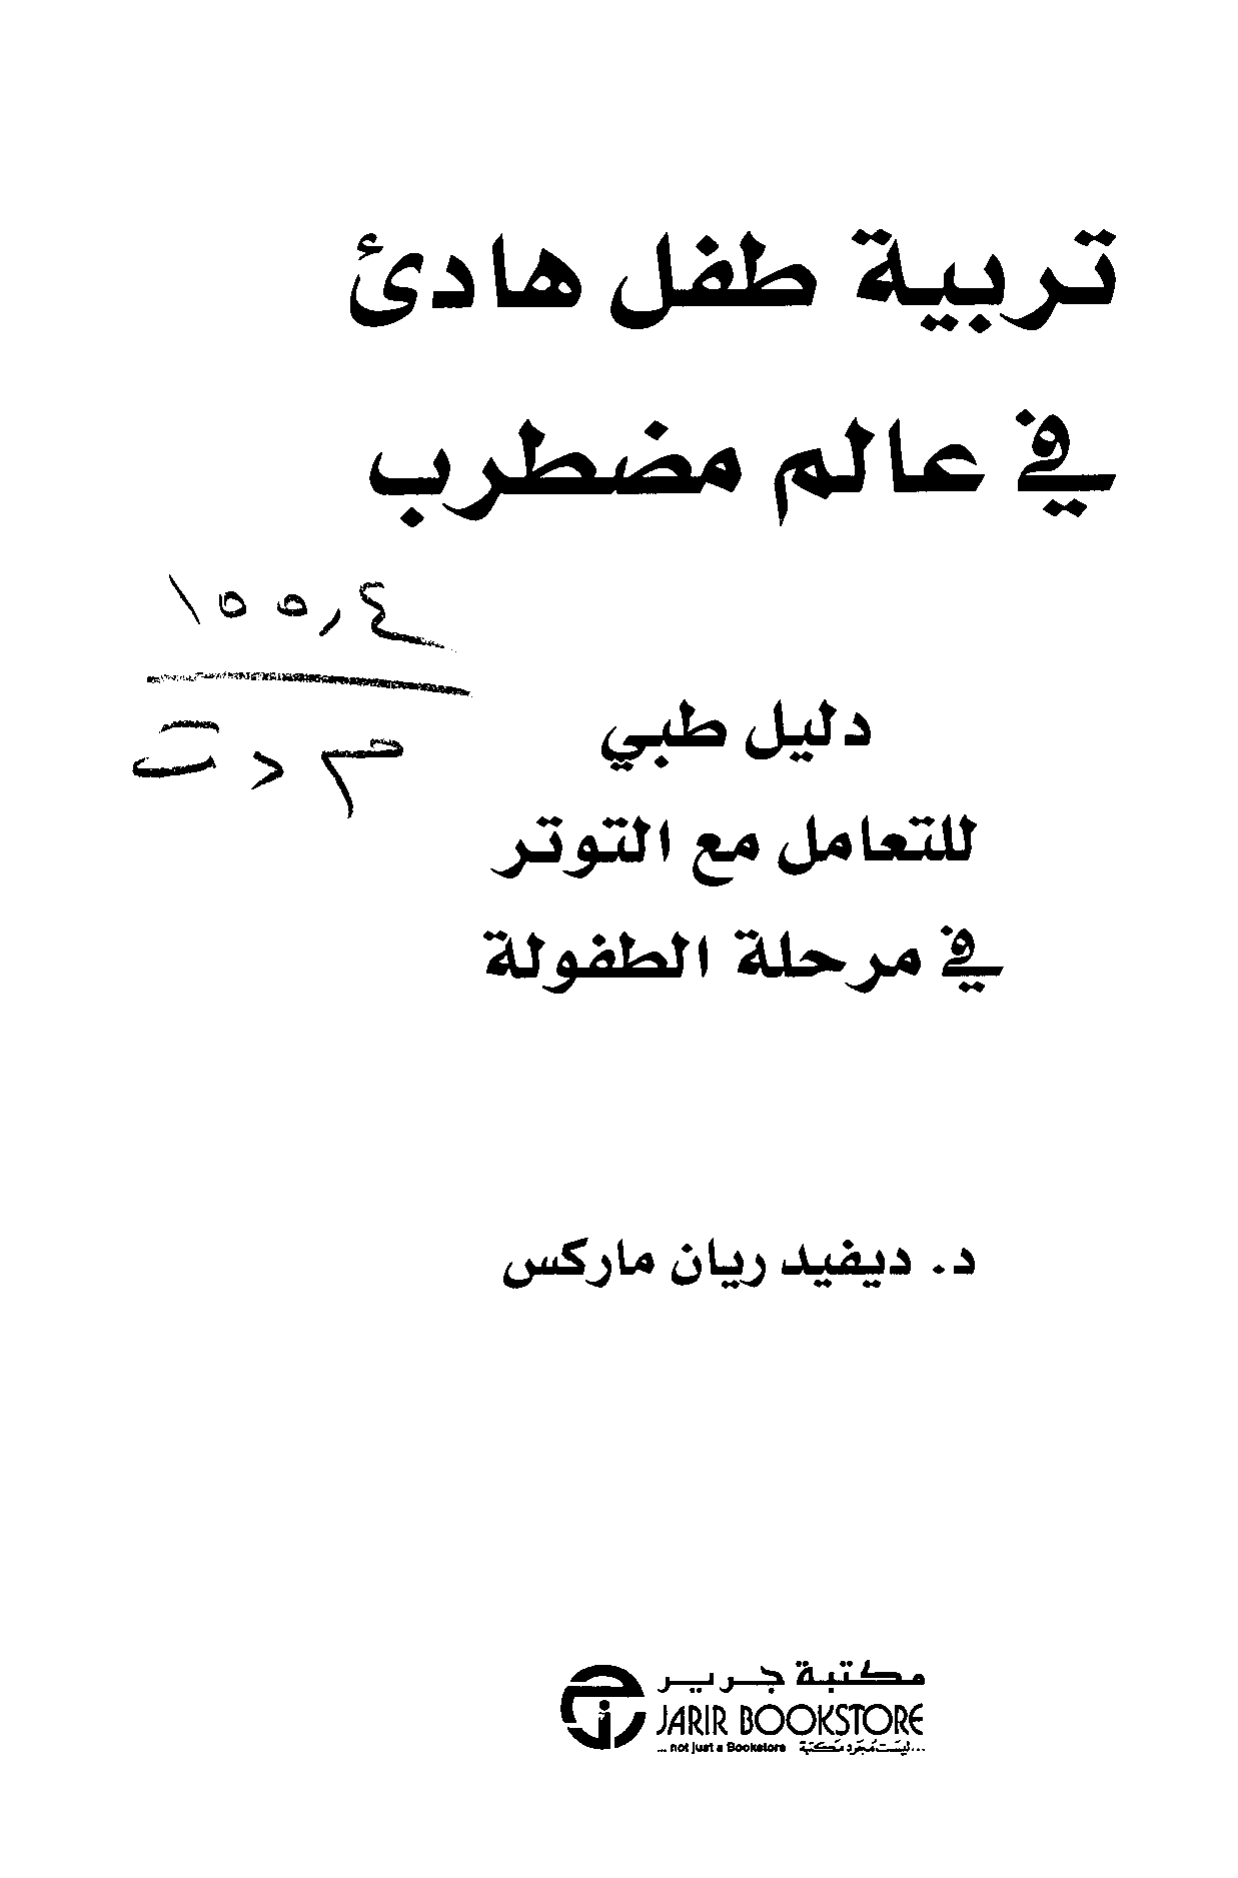 تربية طفل هادئ
في عالم مضطرب
١٥٥,٤
م د ت
دليل طبي
للتعامل مع التوتر
في مرحلة الطفولة
د. ديفيد ريان ماركس
مكتبة جرير
JARIR BOOKSTORE
... not just a Bookstore ...ليست مجرد مكتبة